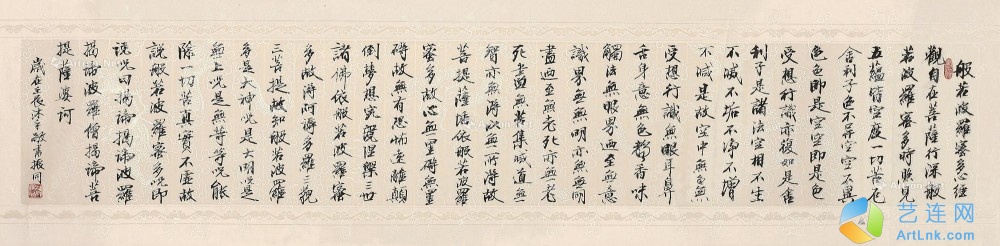 般若波羅蜜多心經
觀自在菩薩行深般
若波羅蜜多時照見
五蘊皆空度一切苦厄
舍利子色不異空空不異
色色即是空空即是色
受想行識亦復如是舍
利子是諸法空相不生
不滅不垢不淨不增
不減是故空中無色無
受想行識無眼耳鼻
舌身意無色聲香味
觸法無眼界乃至無意
識界無無明亦無無明
盡乃至無老死亦無老
死盡無苦集滅道無
智亦無得以無所得故
菩提薩埵依般若波羅
蜜多故心無罣礙無罣
礙故無有恐怖遠離顛
倒夢想究竟涅槃三世
諸佛依般若波羅蜜
多故得阿耨多羅三藐
三菩提故知般若波羅
多是大神咒是大明咒是
無上咒是無等等咒能
除一切苦真實不虛故
說般若波羅蜜多咒即
說咒曰揭諦揭諦波羅
揭諦波羅僧揭諦菩
提薩婆訶
歲在壬辰沐手敬書振同
艺连网
ArtLnk.com